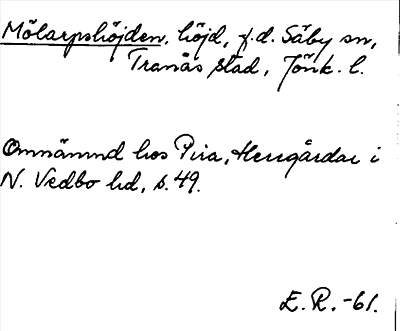 Mölarpshöjden, höjd, f.d. Säby sn,
Tranås stad, Jönk. l.
Omnämnd hos Pira, Herrgårdar i
N. Vedbo hd, s. 49.
E. R. -61.